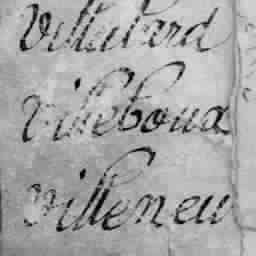 Villatard
Villeboua
Villeneu